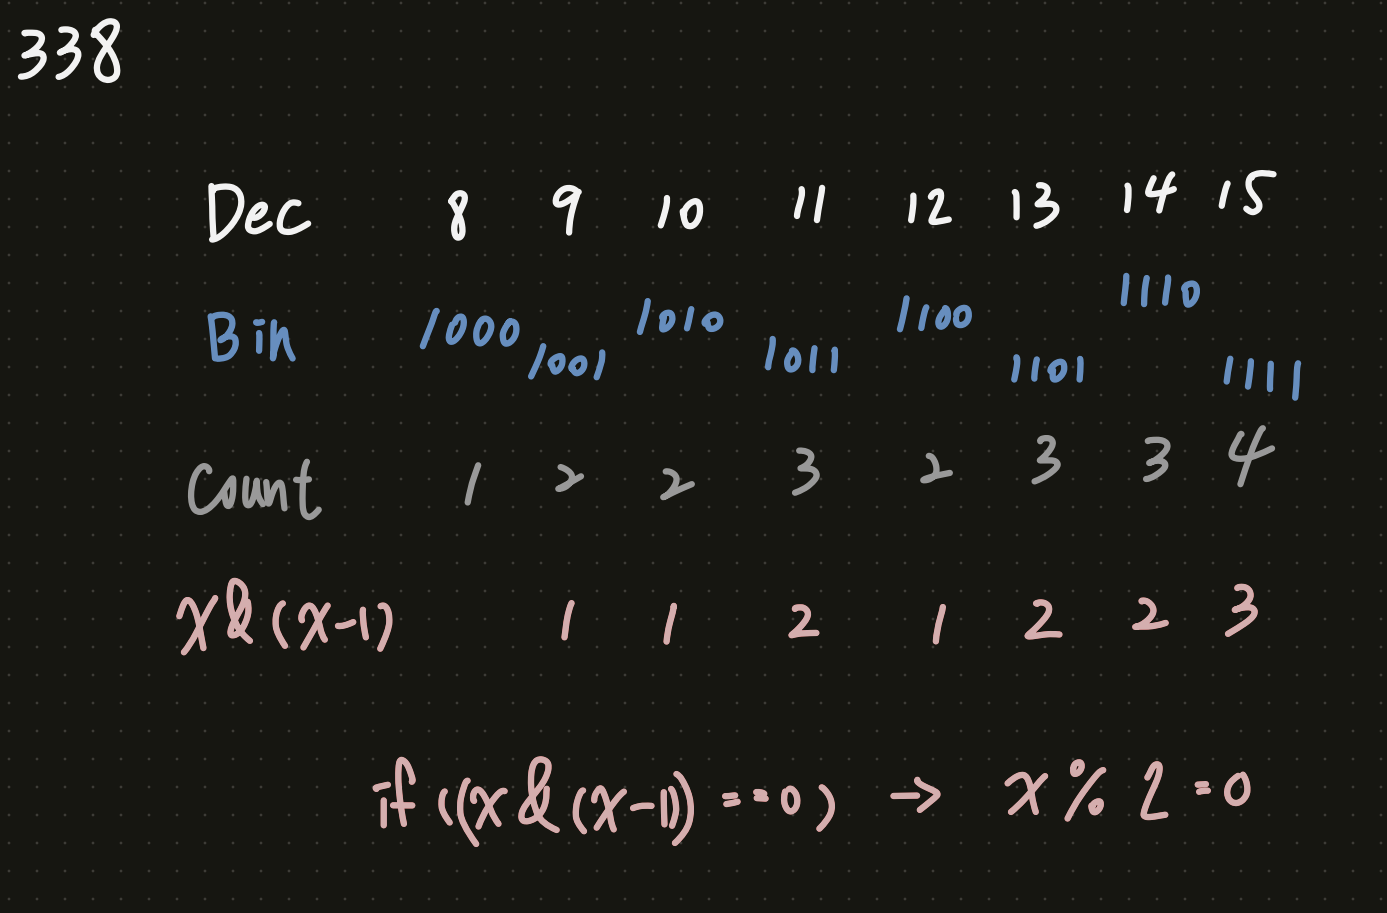 338
Dec 8 9 10 11 12 13 14 15
Bin 1000 1001 1010 1011 1100 1101 1110 1111
Count 1 2 2 3 2 3 3 4
x&(x-1) 1 1 2 1 2 2 3
if((x&(x-1))==0) → x%2=0